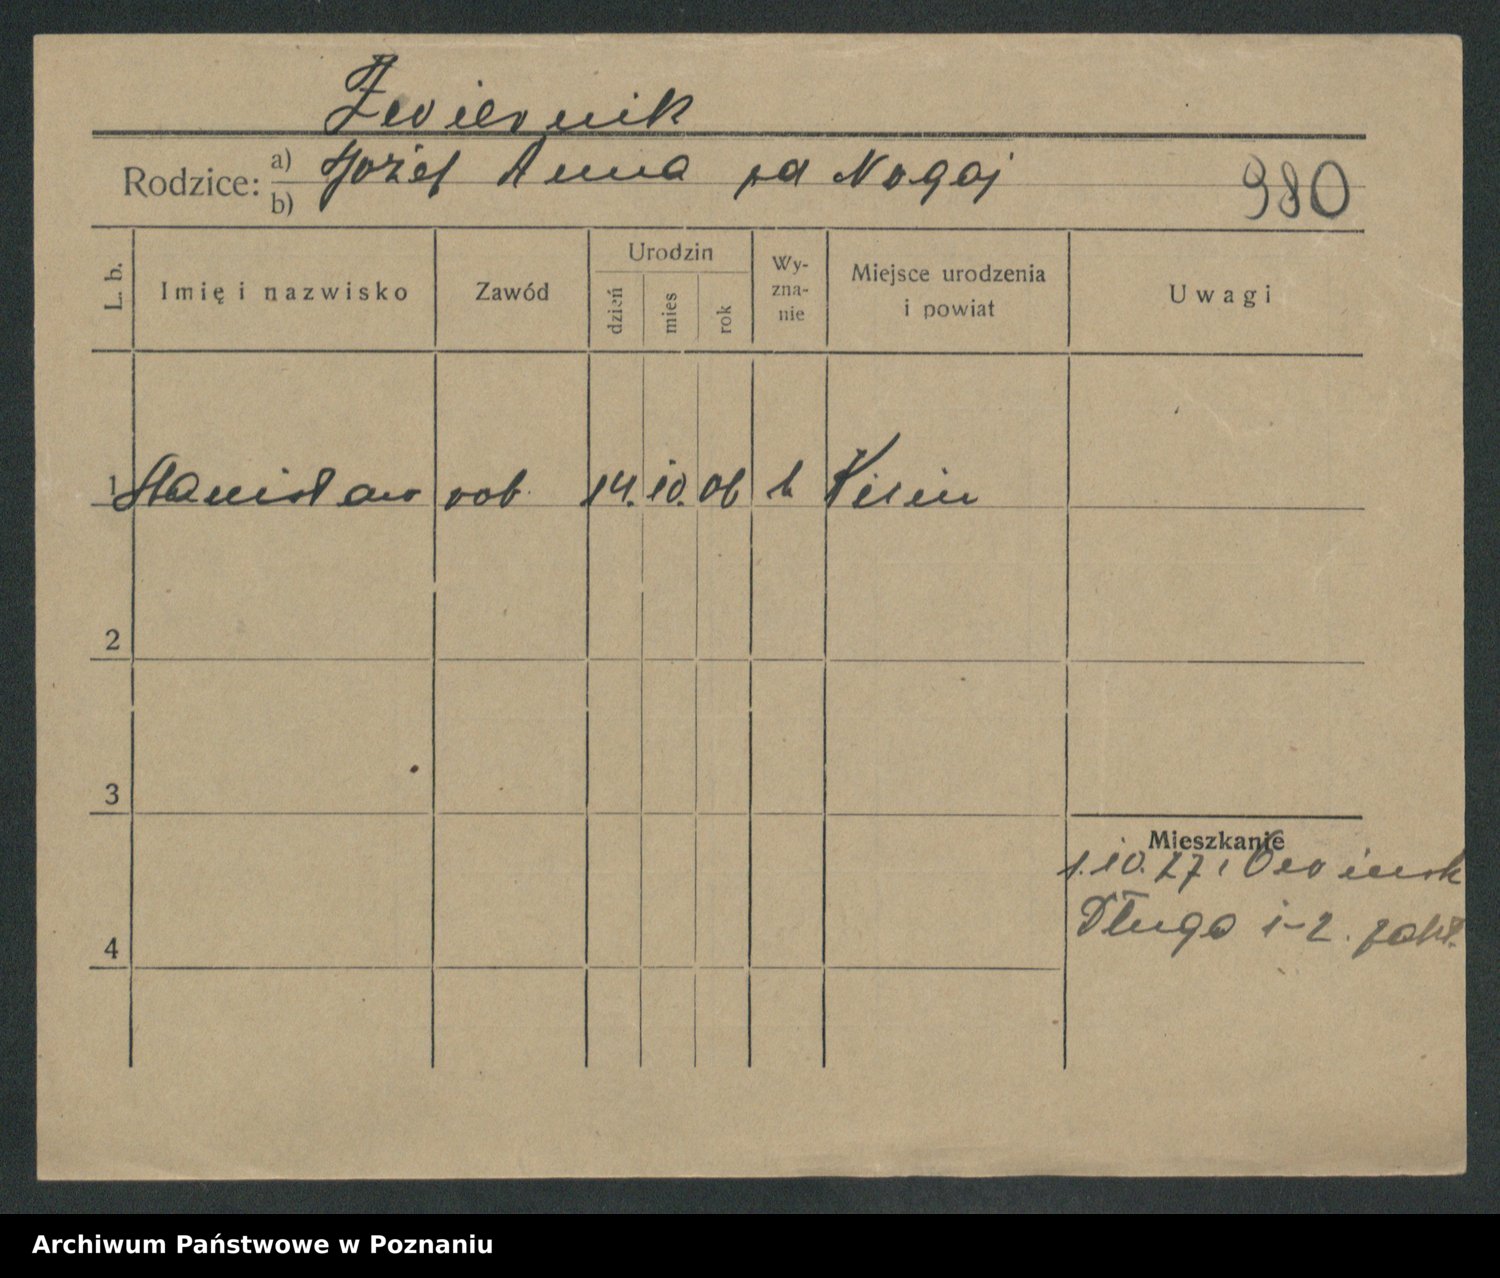 Zwiernik
Rodzice: a) Józef Anna zd Nogaj
b)
980
L. b. Imię i nazwisko Zawód Urodzin dzień mies rok Wy-zna-nie Miejsce urodzenia i powiat Uwagi
1 Stanisław rob. 14. 10. 06 k Kicin
2
3
Mieszkanie
1.10.27 Owinsk
Długa 1-2.
4
Archiwum Państwowe w Poznaniu